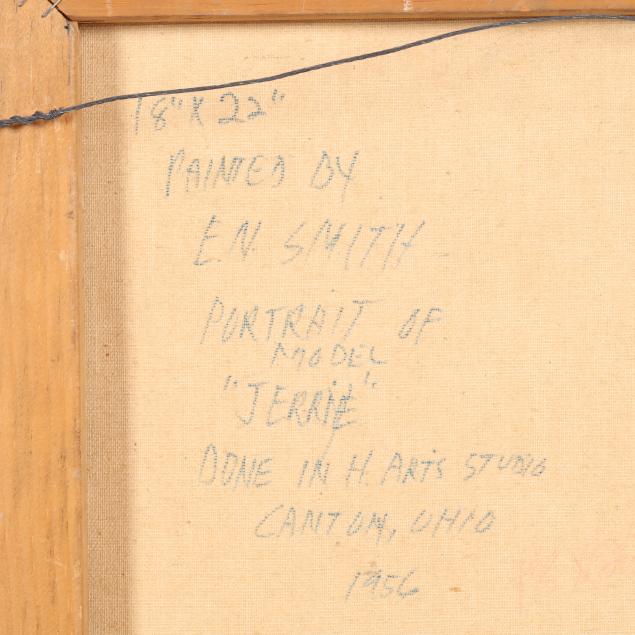 18" X 22"
PAINTED BY
E.N. SMITH
PORTRAIT OF
MODEL
"JERRIE"
DONE IN H. ARTS STUDIO
CANTON, OHIO
1956